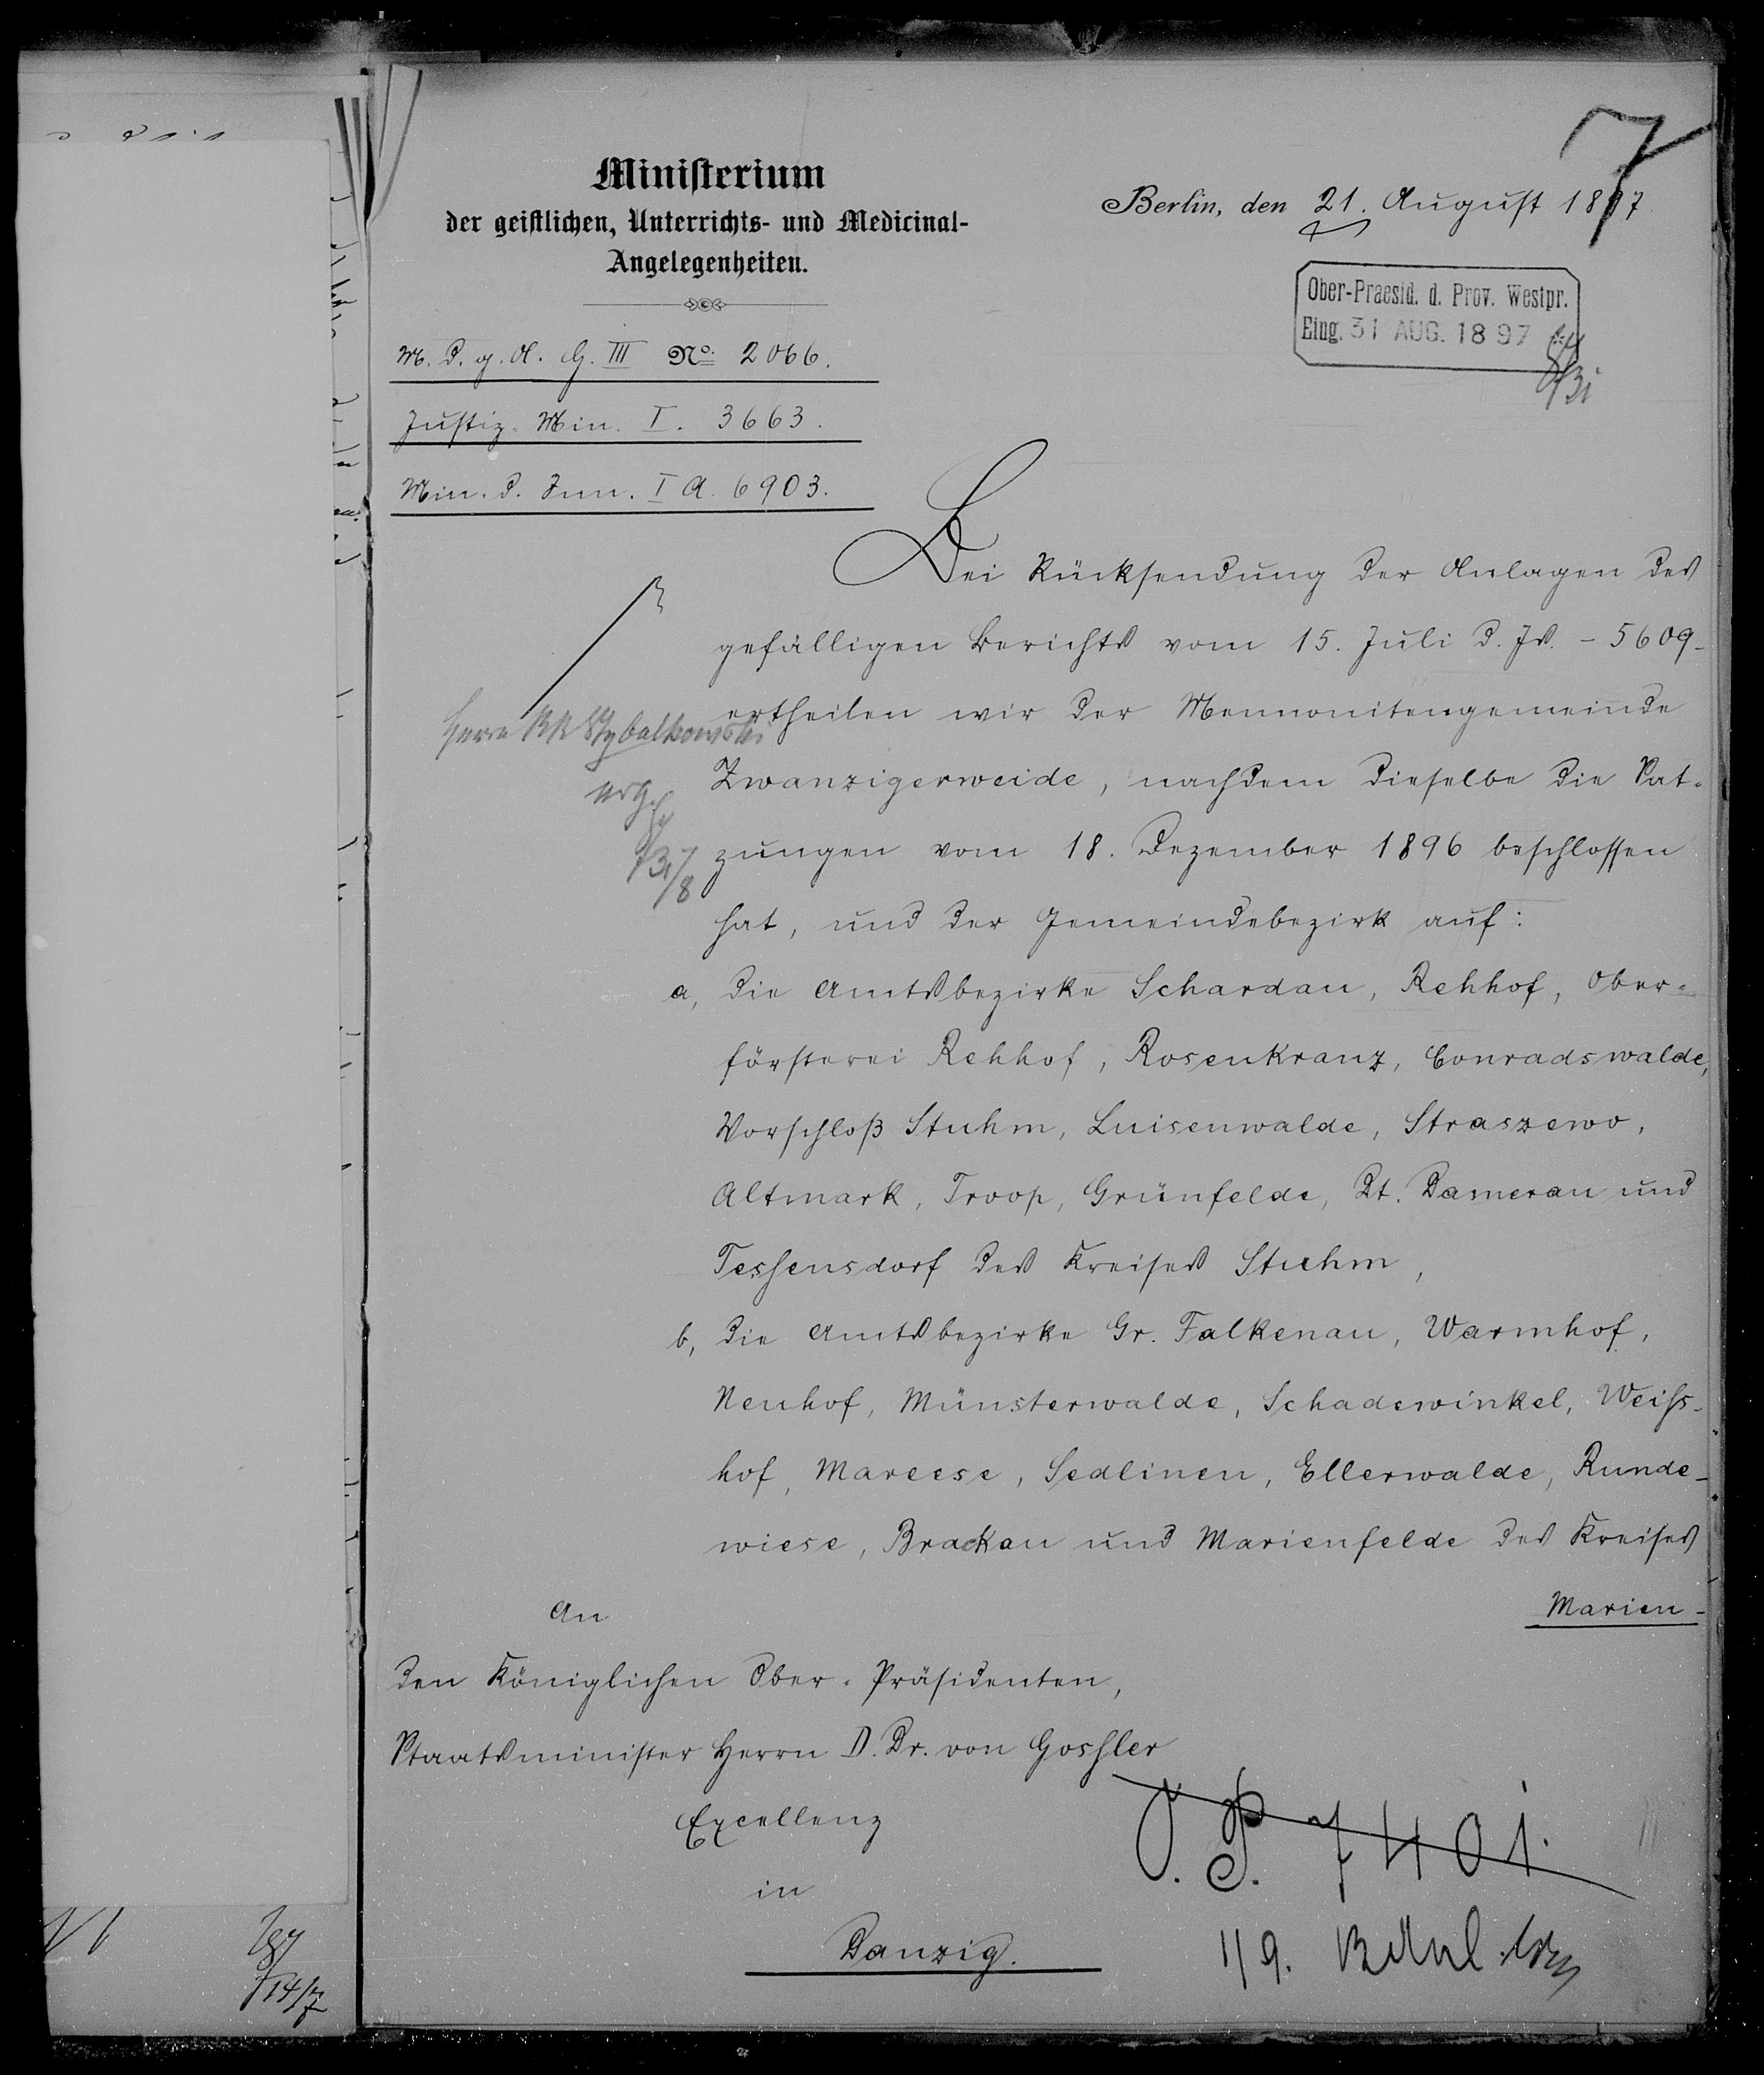 7
Ministerium
der geistlichen, Unterrichts- und Medicinal-
Angelegenheiten.
Berlin, den 21. August 1897
Ober-Praesid. d. Prov. Westpr.
Eing. 31 AUG. 1897
M. d. g. A. G. III No. 2066.
Justiz-Min. I. 3663.
Min. d. Inn. I A. 6903.
Bei Rücksendung der Anlagen des
gefälligen Berichts vom 15. Juli d. Js. - 5609 -
ertheilen wir der Mennonitengemeinde
Zwanzigerweide, nachdem dieselbe die Sat-
zungen vom 18. Dezember 1896 beschlossen
hat, und der Gemeindebezirk auf:
a, die Amtsbezirke Schardau, Rehhof, Ober-
försterei Rehhof, Rosenkranz, Conradswalde,
Vorschloß Stuhm, Luisenwalde, Straszewo,
Altmark, Troop, Grünfelde, Dt. Damerau und
Tessensdorf des Kreises Stuhm,
b, die Amtsbezirke Gr. Falkenau, Warmhof,
Neuhof, Münsterwalde, Schadewinkel, Weiss-
hof, Mareese, Sedlinen, Ellerwalde, Runde-
wiese, Brackau und Marienfelde des Kreises
Marien-
Herrn
31/8
An
den Königlichen Ober-Präsidenten,
Staatsminister Herrn D. Dr. von Gossler
Excellenz
in
Danzig.
O. P. 7401.
1/9.
14/7